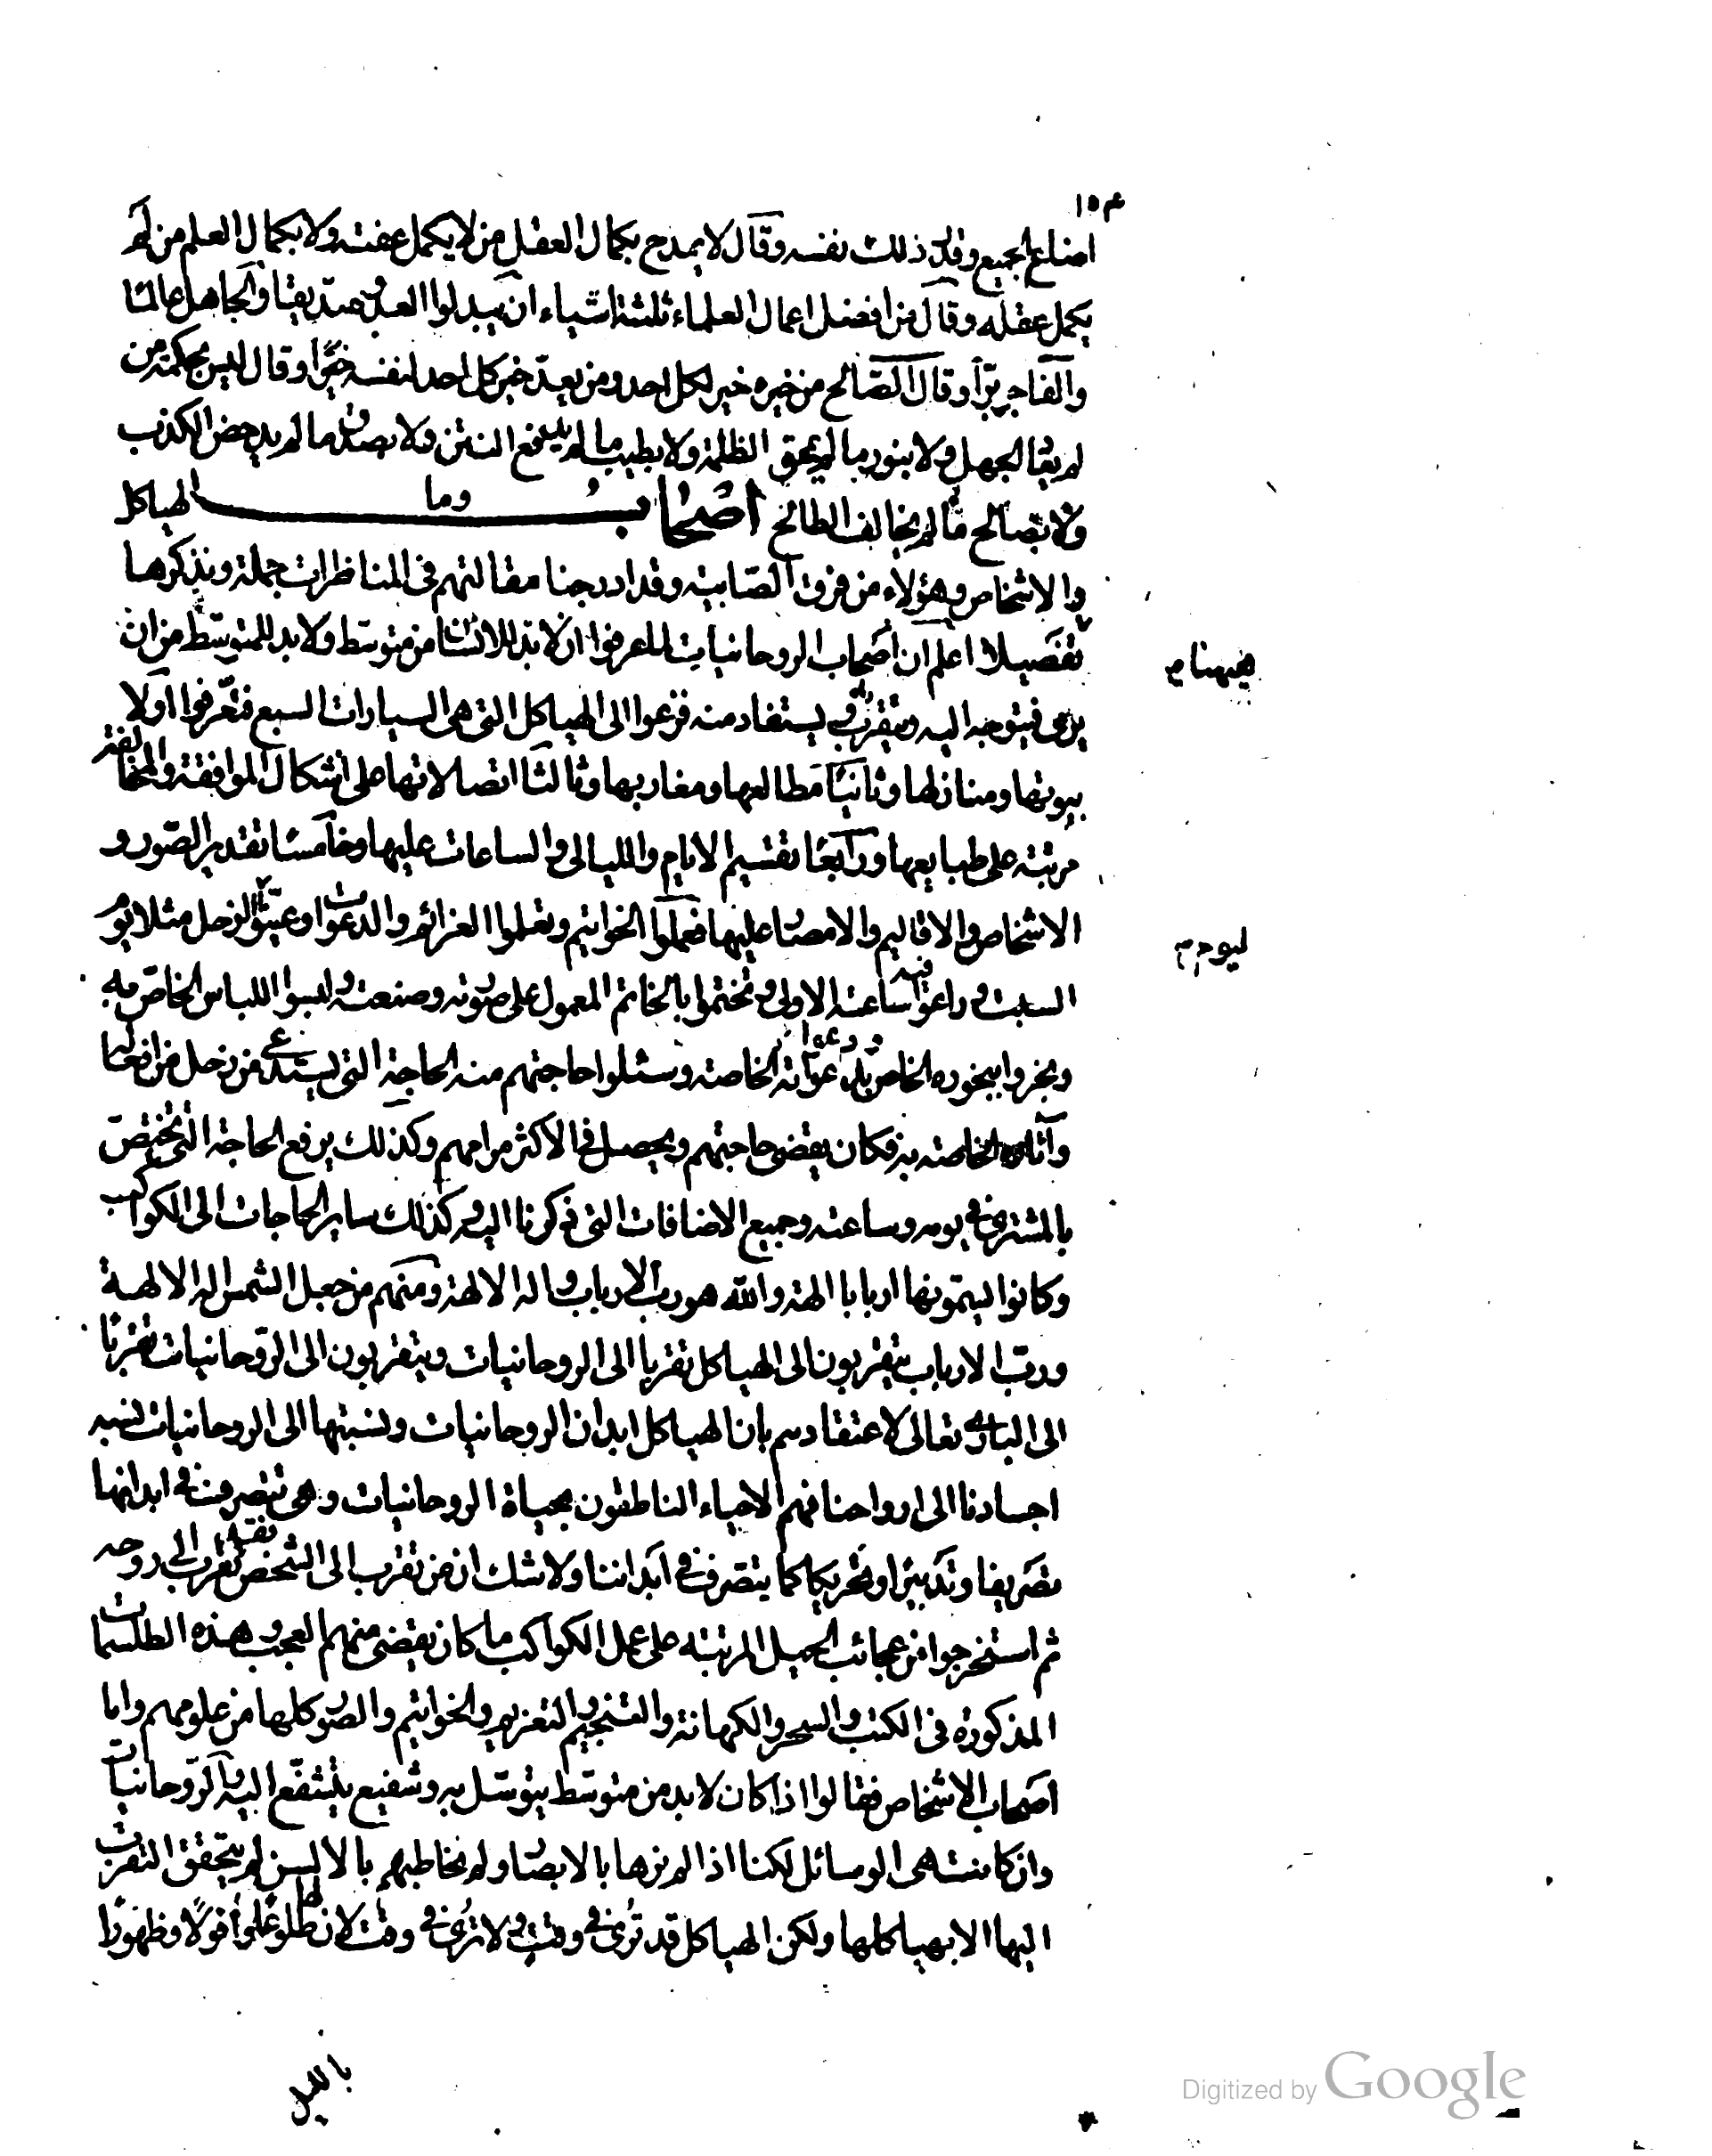 ١٥٣
اضاع الجميع وقال ذلك نفسه وقال لا يمدح بكمال العقل من لا يكمل عفته ولا بكمال العلم من لم
يكمل عقله وقال من افضل اعمال العلماء ثلثة اشياء ان يبدلوا العدو صديقا والجاهل عالما
والفاجر برّا وقال الصالح من خيره خير لكل احد ومن يعدّ خير كل احد لنفسه خيرا وقال ليس بحكمة من
لم يقا الجهل ولا بنور ما لم يمحق الظلمة ولا بطيب ما لم يدفع النتن ولا بصدق ما لم يدحض الكذب
ولا بصالح ما لم يخالف الطالح اصحاب وما الهياكل
والاشخاص وهؤلاء من فرق الصابية وقد ادرجنا مقالتهم فى المناظرات جملة ونذكرها
تفصيلا اعلم ان اصحاب الروحانيات لما عرفوا ان لا بد للانسان من متوسط ولا بد للمتوسط من ان
يرى فيتوجه اليه ويتقرب به ويستفاد منه فزعوا الى الهياكل التى هى السيارات السبع فتعرفوا اولا
بيوتها ومنازلها وثانيا مطالعها ومغاربها وثالثا اتصالاتها على اشكال الموافقة والمخالفة
مرتبة على طبايعها ورابعا تقسيم الايام والليالى والساعات عليها وخامسا تقدير الصور و
الاشخاص والاقاليم والامصار عليها فعملوا الخواتيم وتعلموا العزائم والدعوات وعينوا لزحل مثلا يوم
السبت وراعوا فيه ساعته الاولى وتختموا بالخاتم المعمول على صورته وصنعته ولبسوا اللباس الخاص به
وبخروا ببخوره الخاص ودعوا بدعواته الخاصة وسئلوا حاجتهم منه الحاجة التى يستدعى من زحل من افعاله
وآثاره الخاصة به فكان يقضى حاجتهم ويحصل فى الاكثر مرامهم وكذلك يرفع الحاجة التى تختص
بالمشترى فى يومه وساعته وجميع الاضافات التى ذكرنا اليه وكذلك ساير الحاجات الى الكواكب
وكانوا يسمونها اربابا الهة والله هو رب الارباب واله الالهة ومنهم من جعل الشمس اله الالهة
ورب الارباب يتقربون الى الهياكل تقربا الى الروحانيات ويتقربون الى الروحانيات تقربا
الى البارى تعالى لاعتقادهم بان الهياكل ابدان الروحانيات ونسبتها الى الروحانيات نسبة
اجسادنا الى ارواحنا فهم الاحياء الناطقون بحياة الروحانيات وهى تتصرف فى ابدانها
تصريفا وتدبيرا وتحريكا كما يتصرف فى ابداننا ولا شك ان من تقرب الى الشخص فقد تقرب الى روحه
ثم استخرجوا من عجائب الحيل المرتبة على عمل الكواكب ما كان يقضى منهم العجب وهذه الطلسمات
المذكورة فى الكتب والسحر والكهانة والتنجيم والتعزيم والخواتيم والصور كلها من علومهم واما
اصحاب الاشخاص فقالوا اذا كان لا بد من متوسط يتوسل به وشفيع يتشفع اليه والروحانيات
وان كانت هى الوسائل لكنا اذا لم نرها بالابصار ولم نخاطبهم بالالسن لم يتحقق التقرب
اليها الا بهياكلها ولكن الهياكل قد ترى فى وقت ولا ترى فى وقت لان لها طلوعا وافولا وظهورا
ليوم م
بالليل
Digitized by Google